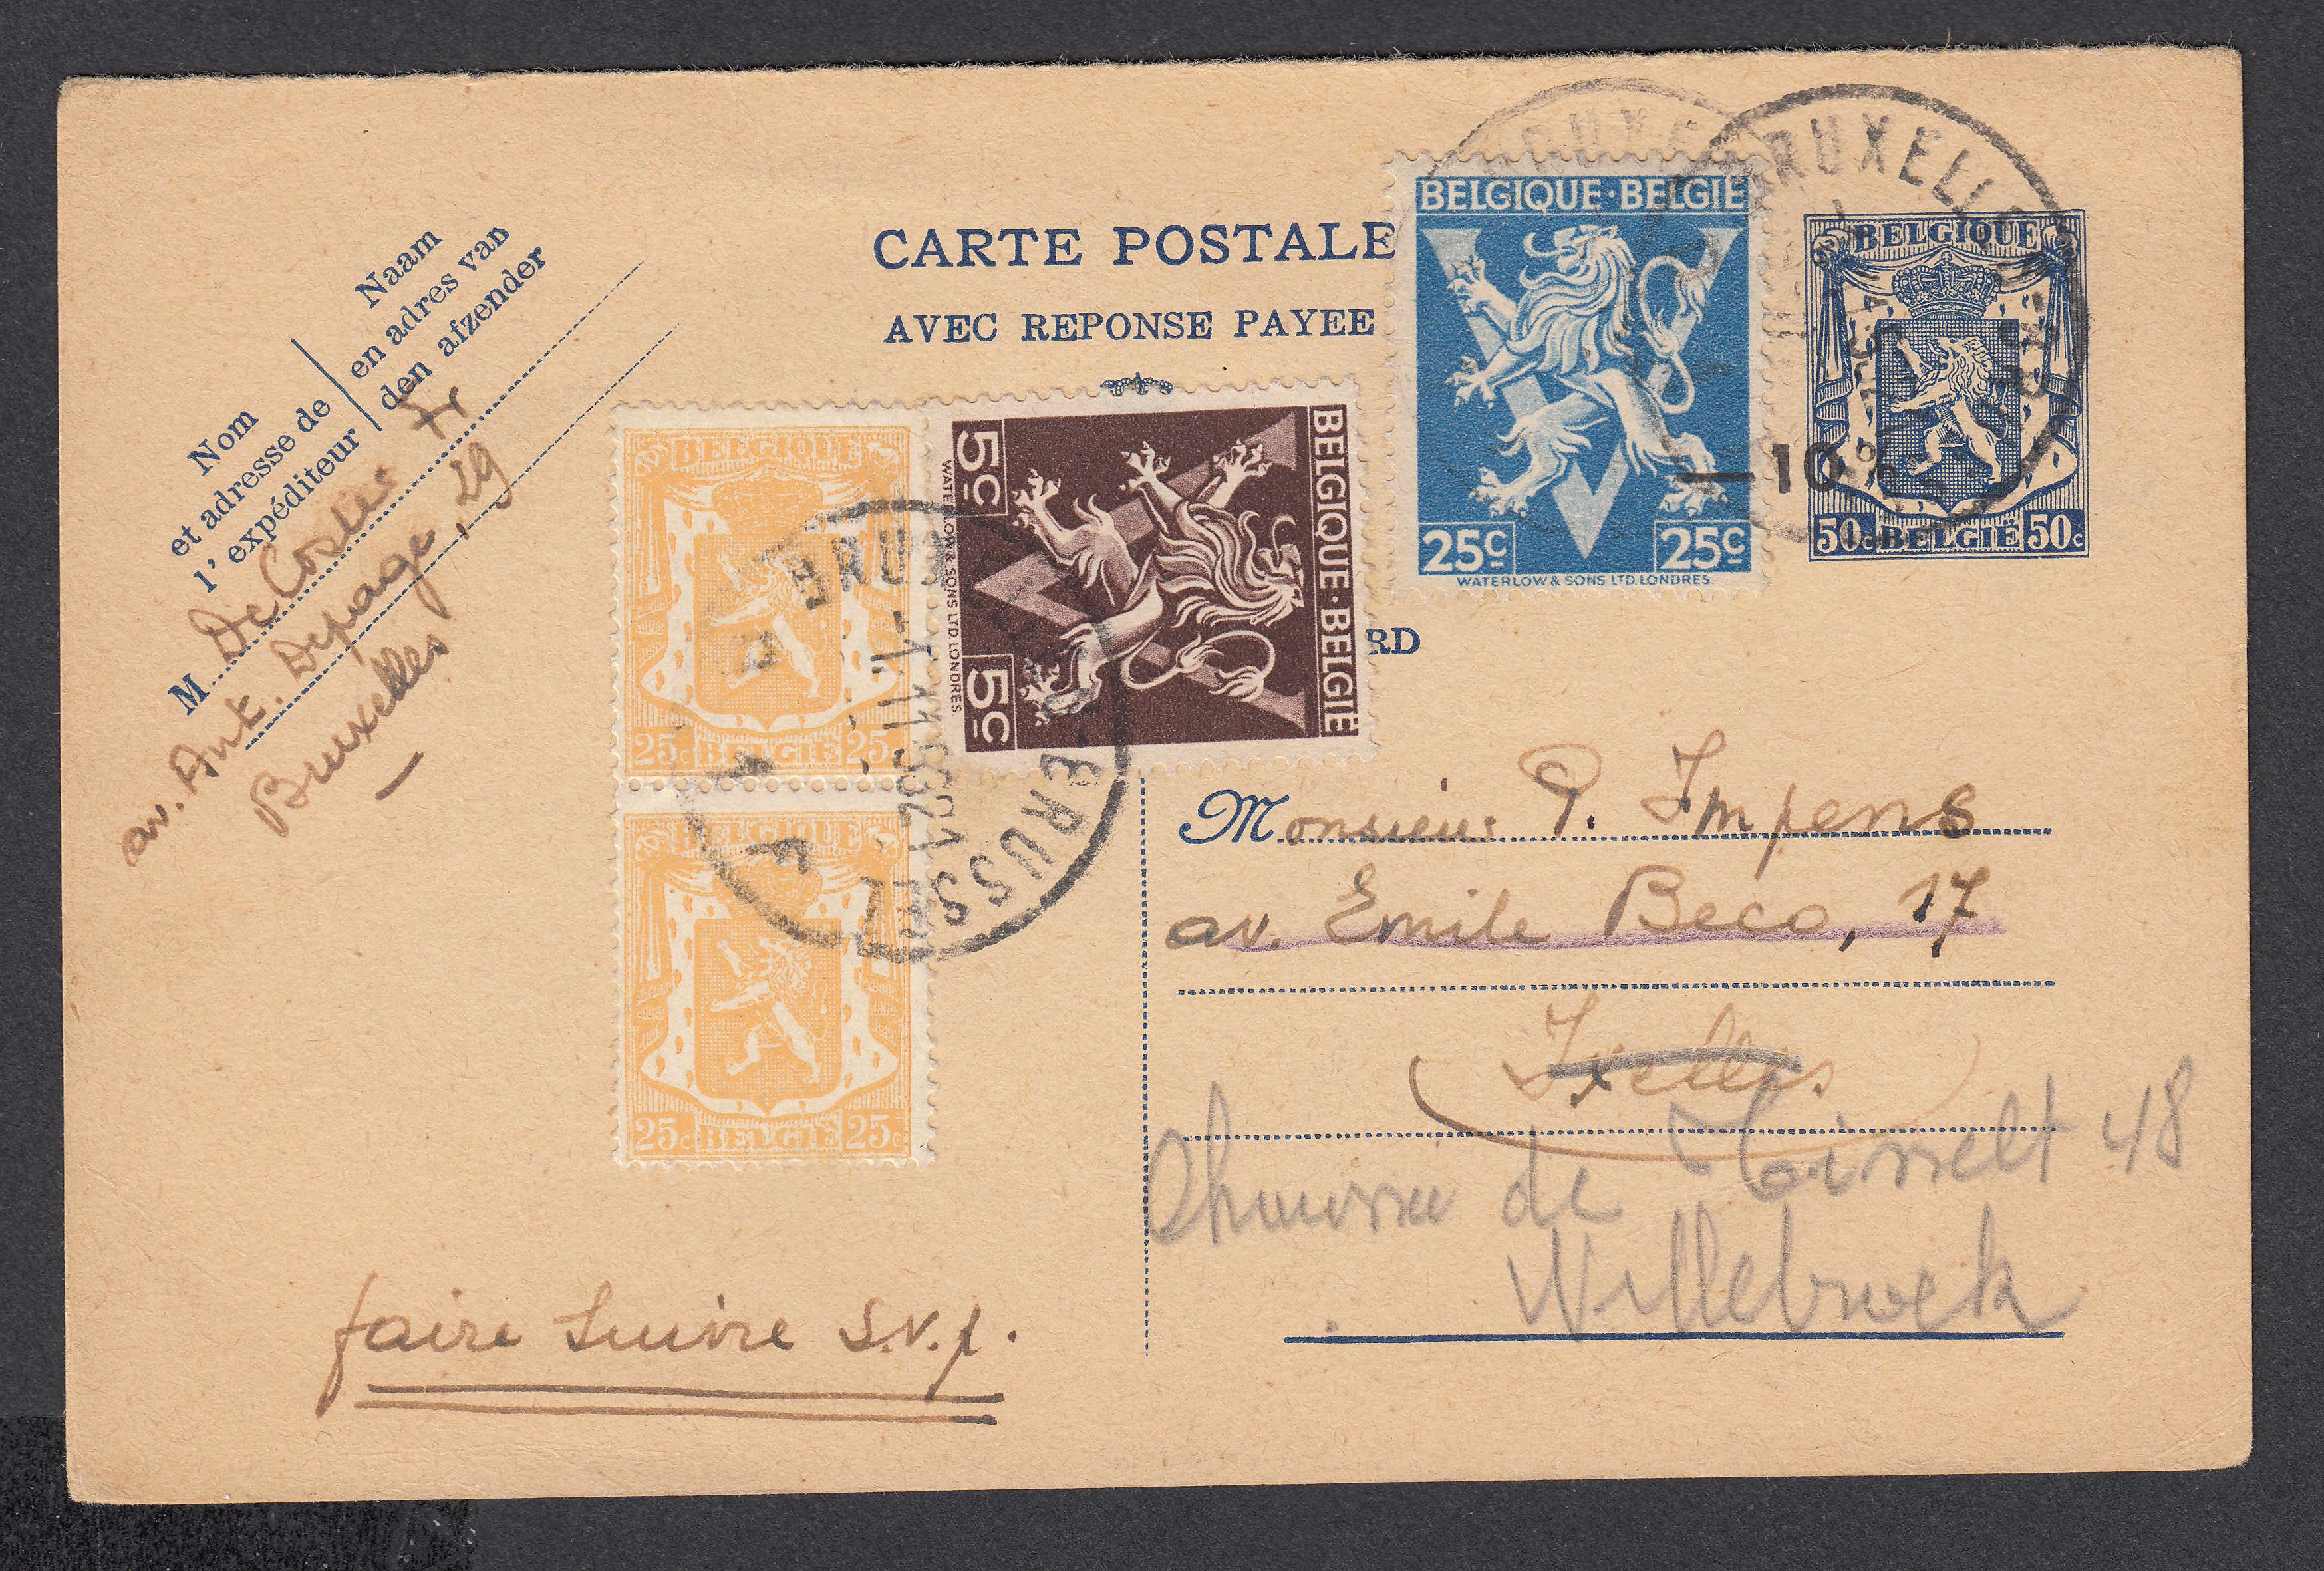 CARTE POSTALE
AVEC REPONSE PAYEE
RD
Nom
et adresse de
l'expéditeur
Naam
en adres van
den afzender
M De Coster Fr
av. Ant. Depage, 29
Bruxelles
BELGIQUE
25c BELGIË 25c
BELGIQUE
25c BELGIË 25c
BELGIQUE·BELGIE
5c 5c
WATERLOW & SONS LTD. LONDRES
BELGIQUE·BELGIE
25c 25c
WATERLOW & SONS LTD. LONDRES.
BELGIQUE
50c BELGIË 50c
—10c
BRUXELLES
BRUSSEL
Monsieur P. Impens
av. Emile Beco, 17
Ixelles
de Tisselt 48
Willebroek
faire suivre S.V.p.